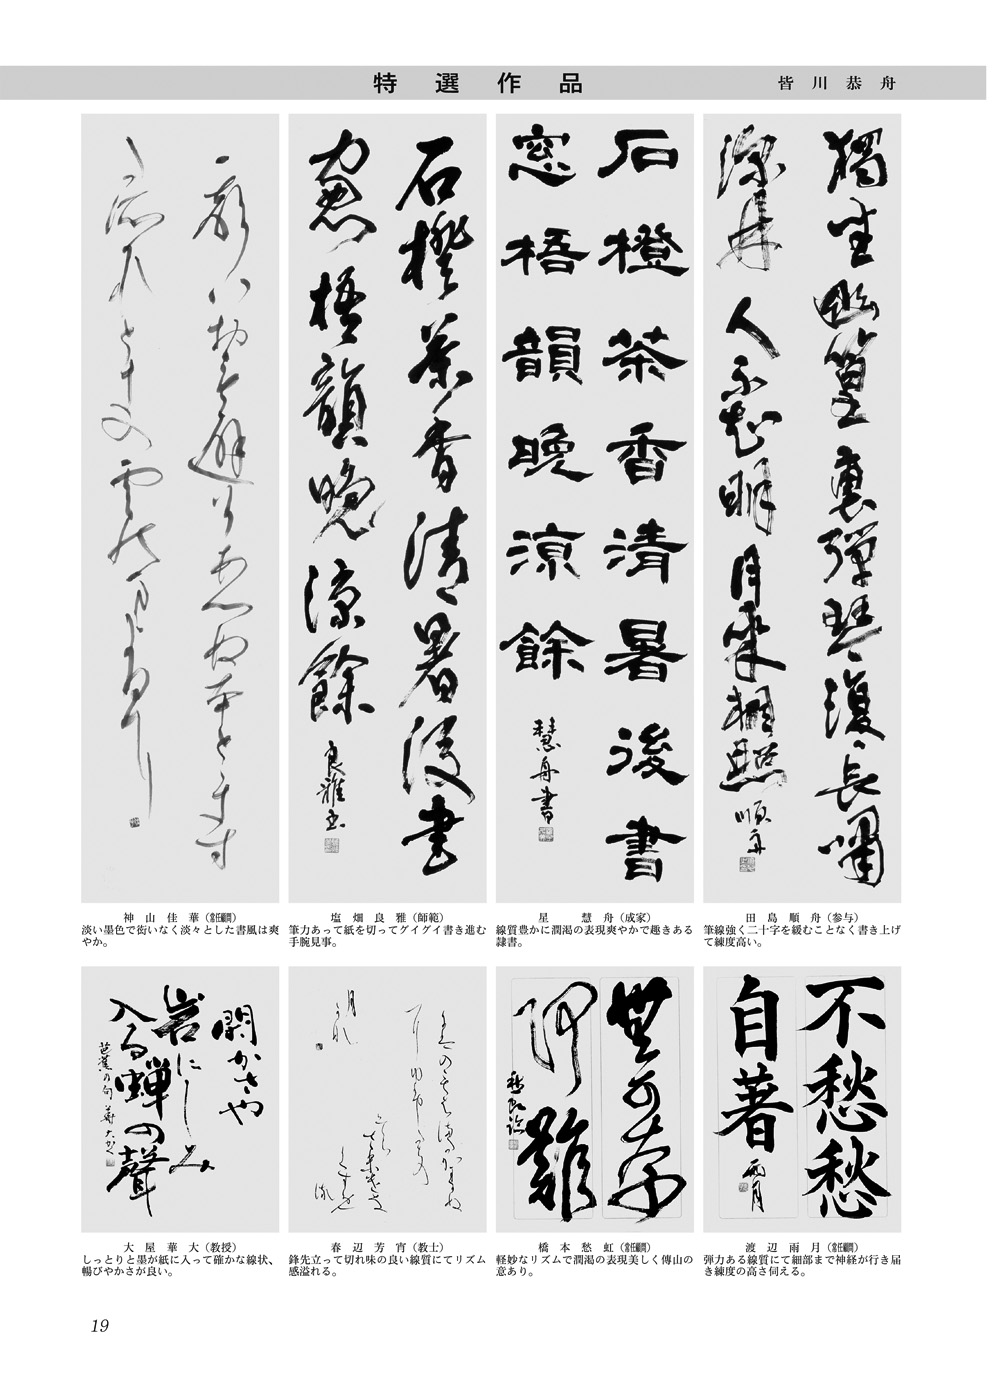 特選作品
皆川恭舟
獨坐幽篁裏弾琴復長嘯
深林人不知明月来相照
順舟
田島順舟（参与）
筆線強く二十字を緩むことなく書き上げ
て練度高い。
石橙茶香清暑後書
窓梧韻晩涼餘
慧舟書
星慧舟（成家）
線質豊かに潤渇の表現爽やかで趣きある
隷書。
石橙茶香清暑後書
窓梧韻晩涼餘
良雅書
塩畑良雅（師範）
筆力あって紙を切ってグイグイ書き進む
手腕見事。
神山佳華（常任顧問）
淡い墨色で衒いなく淡々とした書風は爽
やか。
不愁愁
自著
雨月
渡辺雨月（常任顧問）
弾力ある線質にて細部まで神経が行き届
き練度の高さ伺える。
橋本愁虹（常任顧問）
軽妙なリズムで潤渇の表現美しく傅山の
意あり。
春辺芳宵（教士）
鋒先立って切れ味の良い線質にてリズム
感溢れる。
閑かさや
岩にしみ
入る蝉の聲
芭蕉の句 華大かく
大屋華大（教授）
しっとりと墨が紙に入って確かな線状、
暢びやかさが良い。
19